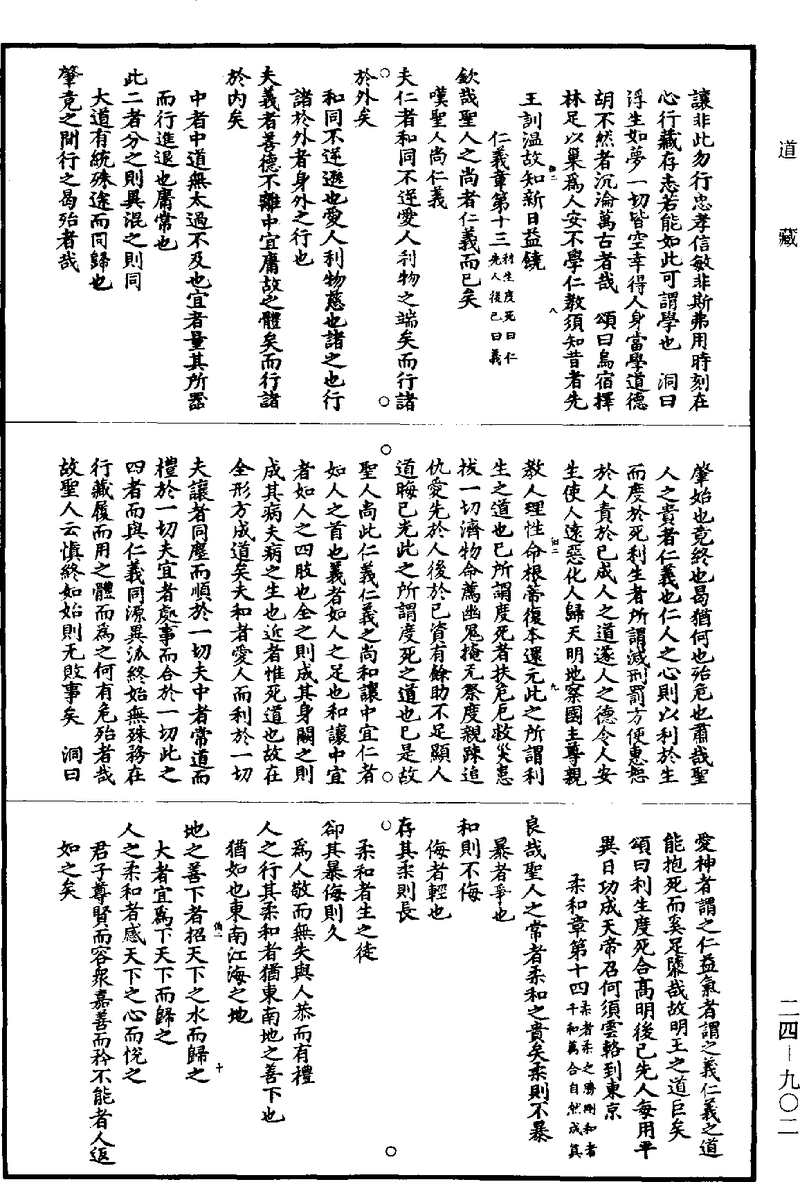 道藏
讓非此勿行忠孝信敏非斯弗用時刻在
心行藏存志若能如此可謂學也　洞曰
浮生如夢一切皆空幸得人身當學道德
胡不然者沉淪萬古者哉　頌曰鳥宿擇
林足以巢為人安不學仁教須知昔者先
王訓温故知新日益饒
仁義章第十三利生度死曰仁先人後己曰義
欽哉聖人之尚者仁義而已矣
嘆聖人尚仁義
夫仁者和同不迕愛人利物之端矣而行諸
於外矣
和同不迕遜也愛人利物慈也諸之也行
諸於外者身外之行也
夫義者善德不離中宜庸故之體矣而行諸
於內矣
中者中道無太過不及也宜者量其所器
而行進退也庸常也
此二者分之則異混之則同
大道有統殊途而同歸也
肇竟之間行之曷殆者哉
肇始也竟終也曷猶何也殆危也肅哉聖
人之貴者仁義也仁人之心則以利於生
而度於死利生者所謂減刑罰方便惠恕
於人責於己成人之道遂人之德令人安
生使人遠惡化人歸天明地察國主尊親
教人理性命根蒂復本還元此之所謂利
生之道也已所謂度死者扶危厄救災患
拔一切濟物命薦幽冤掩无祭度親疎追
仇愛先於人後於己資有餘助不足顯人
道晦己光此之所謂度死之道也已是故
聖人尚此仁義仁義之尚和讓中宜仁者
如人之首也義者如人之足也和讓中宜
者如人之四肢也全之則成其身闕之則
成其病夫病之生也近者惟死道也故在
全形方成道矣夫和者愛人而利於一切
夫讓者同塵而順於一切夫中者常道而
禮於一切夫宜者處事而合於一切此之
四者而與仁義同源異派終始無殊務在
行藏履而用之體而為之何有危殆者哉
故聖人云慎終如始則无敗事矣　洞曰
愛神者謂之仁益氣者謂之義仁義之道
能抱死而奚足隳哉故明王之道巨矣
頌曰利生度死合高明後己先人每用平
異日功成天帝召何須雲輅到東京
柔和章第十四柔者柔之勝剛和者千和萬合自然成真
良哉聖人之常者柔和之貴矣柔則不暴
暴者爭也
和則不侮
侮者輕也
存其柔則長
柔和者生之徒
卻其暴侮則久
為人敬而無失與人恭而有禮
人之行其柔和者猶東南地之善下也
猶如也東南江海之地
地之善下者招天下之水而歸之
大者宜為下天下而歸之
人之柔和者感天下之心而悅之
君子尊賢而容眾嘉善而矜不能者人返
如之矣
二四－九〇二